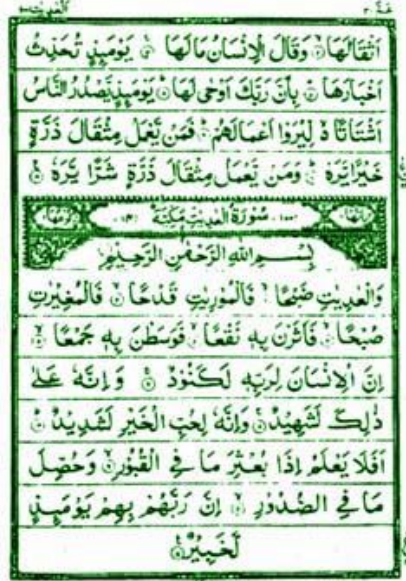 اَثْقَالَهَا ۙ وَقَالَ الْاِنْسَانُ مَا لَهَا ۚ يَوْمَئِذٍ تُحَدِّثُ
اَخْبَارَهَا ۙ بِاَنَّ رَبَّكَ اَوْحٰى لَهَا ؕ يَوْمَئِذٍ يَّصْدُرُ النَّاسُ
اَشْتَاتًا ۙ لِّيُرَوْا اَعْمَالَهُمْ ؕ فَمَنْ يَّعْمَلْ مِثْقَالَ ذَرَّةٍ
خَيْرًا يَّرَهٗ ؕ وَمَنْ يَّعْمَلْ مِثْقَالَ ذَرَّةٍ شَرًّا يَّرَهٗ
سُوْرَةُ الْعٰدِيٰتِ مَكِّيَّةٌ
بِسْمِ اللهِ الرَّحْمٰنِ الرَّحِيْمِ
وَالْعٰدِيٰتِ ضَبْحًا ۙ فَالْمُوْرِيٰتِ قَدْحًا ۙ فَالْمُغِيْرٰتِ
صُبْحًا ۙ فَاَثَرْنَ بِهٖ نَقْعًا ۙ فَوَسَطْنَ بِهٖ جَمْعًا ۙ
اِنَّ الْاِنْسَانَ لِرَبِّهٖ لَكَنُوْدٌ ۚ وَاِنَّهٗ عَلٰى
ذٰلِكَ لَشَهِيْدٌ ۚ وَاِنَّهٗ لِحُبِّ الْخَيْرِ لَشَدِيْدٌ ؕ
اَفَلَا يَعْلَمُ اِذَا بُعْثِرَ مَا فِي الْقُبُوْرِ ۙ وَحُصِّلَ
مَا فِي الصُّدُوْرِ ۙ اِنَّ رَبَّهُمْ بِهِمْ يَوْمَئِذٍ
لَّخَبِيْرٌ